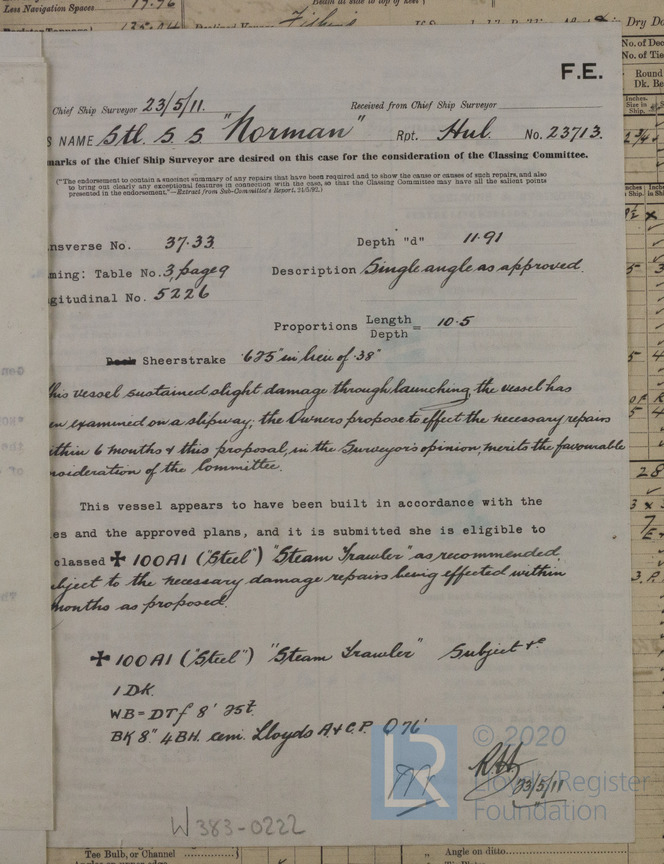 Less Navigation Spaces 19.96
Dry Do
No. of Dec
No. of Tie
Round
Dk. Be
Inches.
Size in
Ship.
F.E.
Chief Ship Surveyor 23/5/11. Received from Chief Ship Surveyor
S NAME Stl. S. S. "Norman" Rpt. Hul. No. 23713.
marks of the Chief Ship Surveyor are desired on this case for the consideration of the Classing Committee.
("The endorsement to contain a succinct summary of any repairs that have been required and to show the cause or causes of such repairs, and also
to bring out clearly any exceptional features in connection with the case, so that the Classing Committee may have all the salient points
presented in the endorsement."—Extract from Sub-Committee's Report, 21/5/92.)
nsverse No. 37.33 Depth "d" 11.91
ming: Table No. 3, page 9 Description Single angle as approved.
gitudinal No. 5226
Proportions Length
Depth = 10.5
Deck Sheerstrake .625" in lieu of .38"
his vessel sustained slight damage through launching, the vessel has
en examined on a slipway; the Owners propose to effect the necessary repairs
ithin 6 months & this proposal, in the Surveyor's opinion, merits the favourable
nsideration of the Committee.
This vessel appears to have been built in accordance with the
es and the approved plans, and it is submitted she is eligible to
classed ✠ 100A1 ("Steel") "Steam Trawler" as recommended,
bject to the necessary damage repairs being effected within
months as proposed.
✠ 100A1 ("Steel") "Steam Trawler" Subject &c
1 DK.
WB = DTf 8' 25t.
BK 8" 4BH. cem. Lloyds A & C.P.
23/5/11
LR
© 2020
Lloyd's Register
Foundation
W383-0222
Tee Bulb, or Channel
Angle on ditto